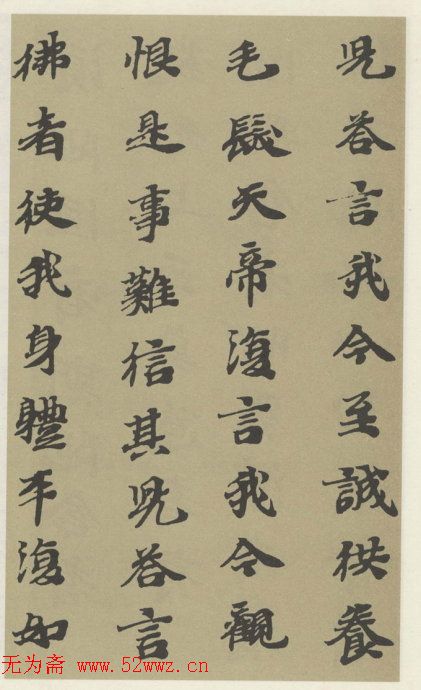 兒荅言我今至誠供養
毛髮天帝復言我今觀
恨是事難信其兒荅言
佛者使我身體平復如
无为斋 www.52wwz.cn